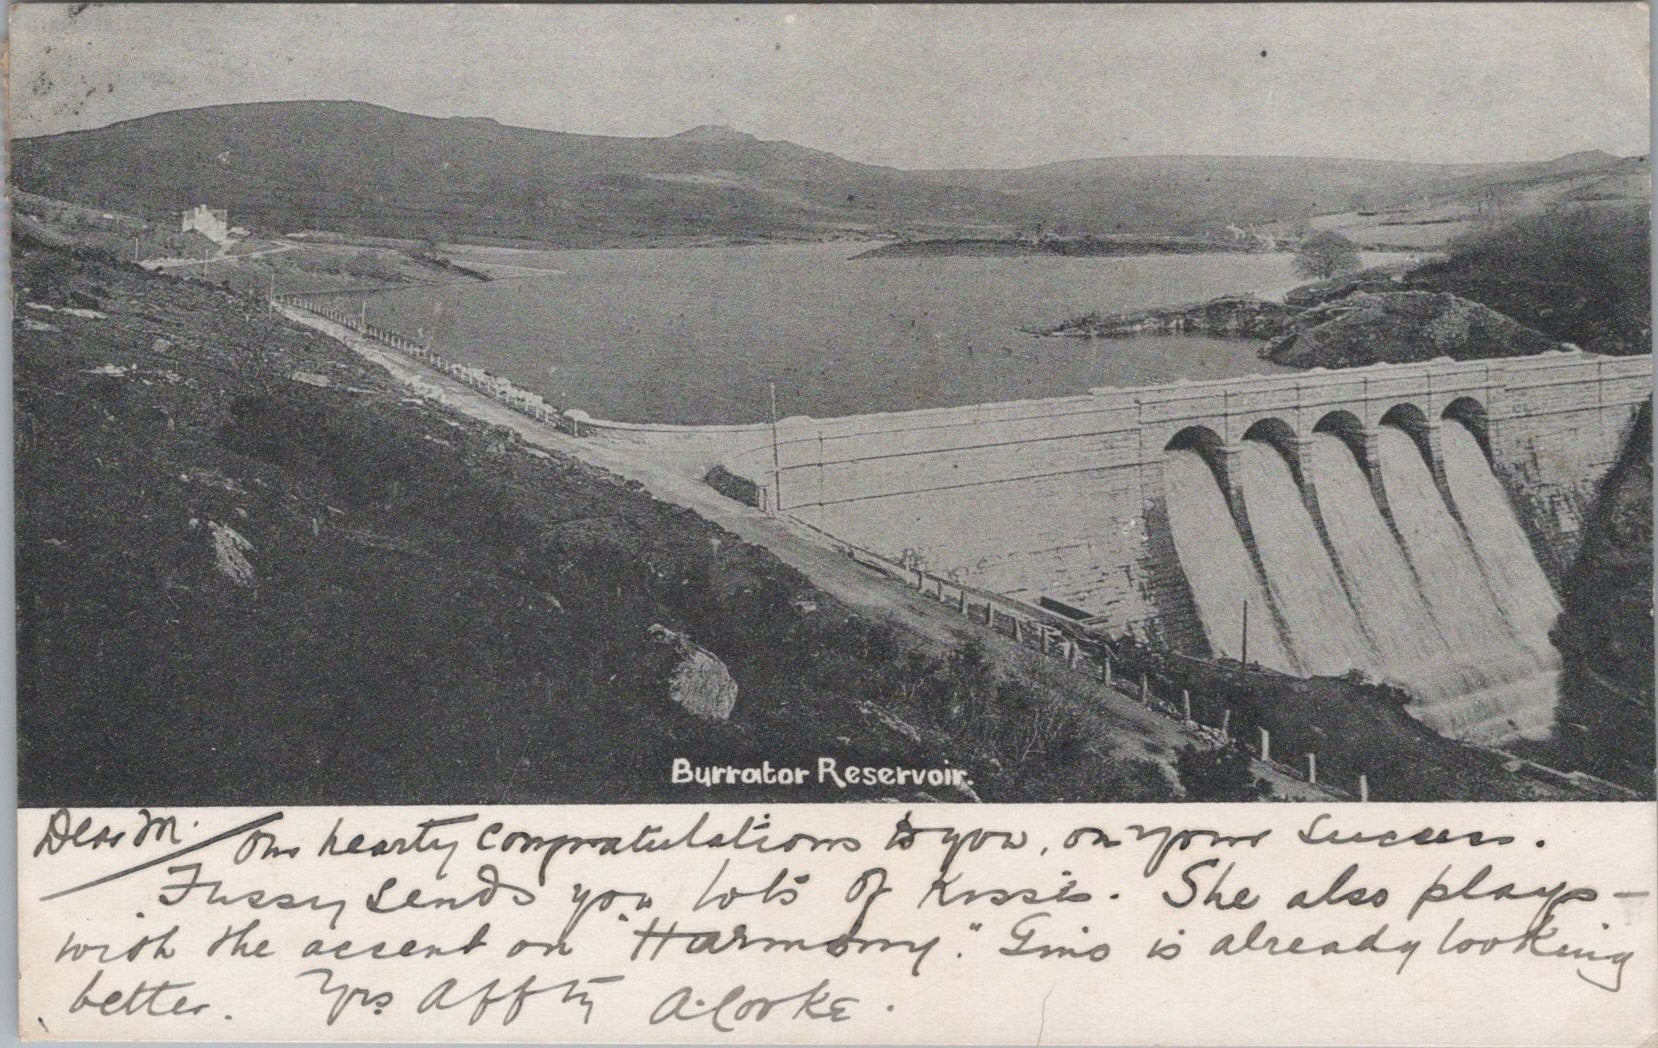 Burrator Reservoir.
Dear M. Our hearty congratulations to you, on your success.
Fussy sends you lots of kisses. She also plays –
with the accent on "Harmony." is already looking
better. Yrs Affty A. Cooke.